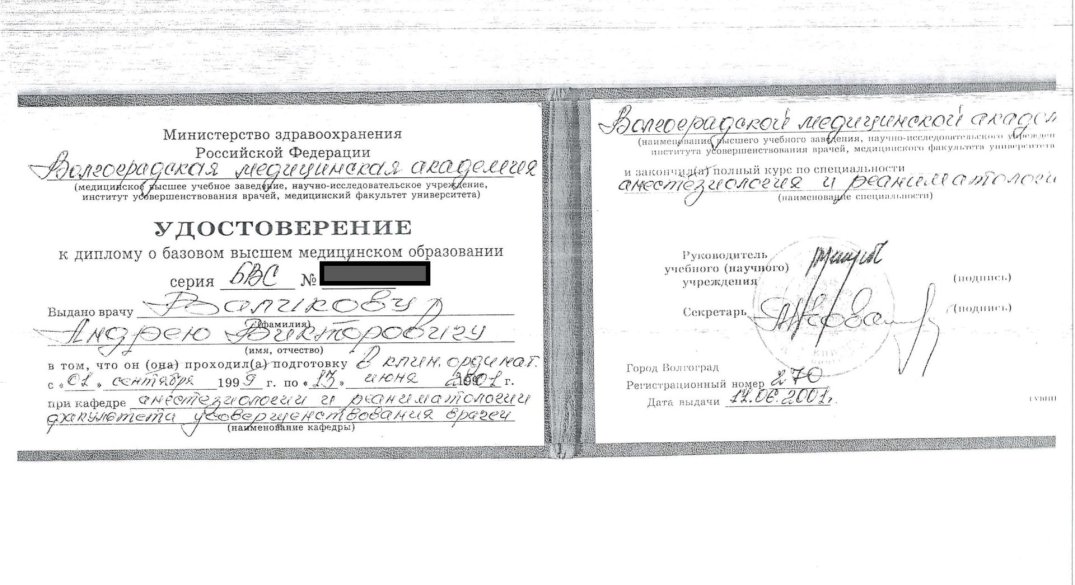 Министерство здравоохранения
Российской Федерации
Волгоградская медицинская академия
(медицинское высшее учебное заведение, научно-исследовательское учреждение,
институт усовершенствования врачей, медицинский факультет университета)
УДОСТОВЕРЕНИЕ
к диплому о базовом высшем медицинском образовании
серия БВС №
Выдано врачу Валикову
(фамилия)
Андрею Викторовичу
(имя, отчество)
в том, что он (она) проходил(а) подготовку в клин. ординат.
с «01» сентября 1999 г. по «13» июня 2001 г.
при кафедре анестезиологии и реаниматологии
факультета усовершенствования врачей
(наименование кафедры)
Волгоградской медицинской академ
(наименование высшего учебного заведения, научно-исследовательского учрежден
института усовершенствования врачей, медицинского факультета университета
и закончил(а) полный курс по специальности
анестезиология и реаниматологи
(наименование специальности)
Руководитель
учебного (научного)
учреждения (подпись)
Секретарь (подпись)
Город Волгоград
Регистрационный номер 270
Дата выдачи .06.2001г.